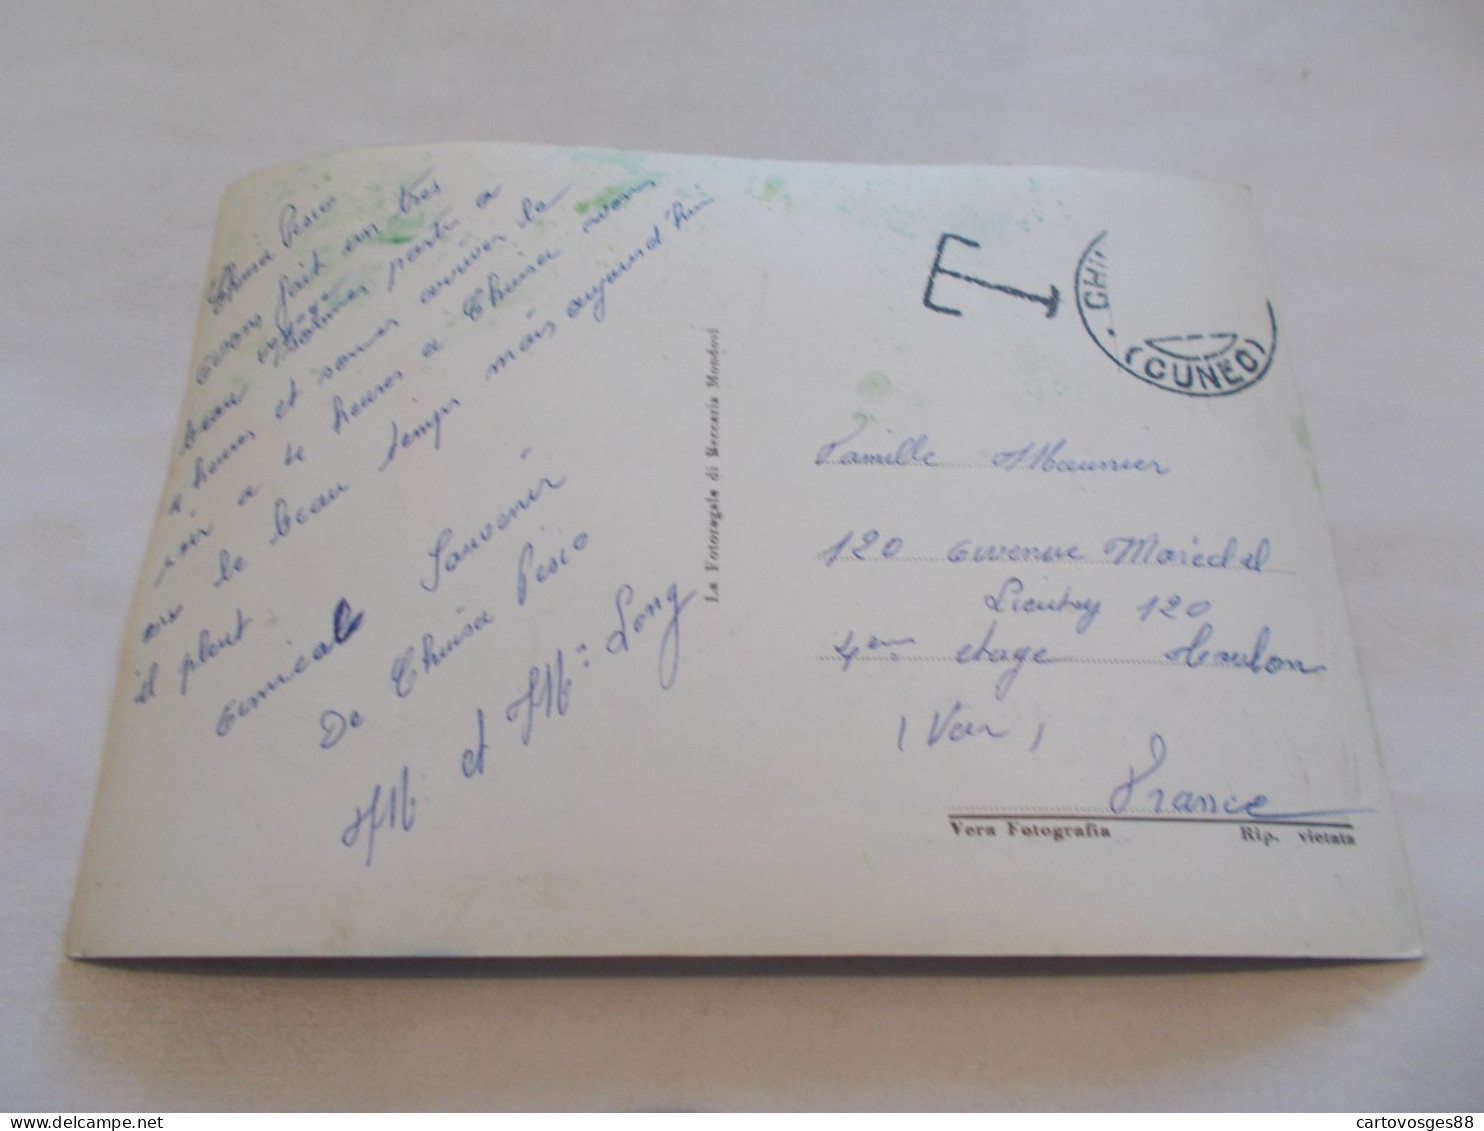 Chuisa Pesio
avons fait um tres
beau voyage
sommes parti a
heures et somes arriver le
soir a heures a Chuisa avons
eu le beau temps mais aujourd'hui
il pleut
amical Souvenir
De Chuisa Pesio
M et Mme Long
La Fotoregale di Beccaria Mondovì
T
CHI
(CUNEO)
Famille Maunier
120 avenue Marechal
Lieutey 120
4em etage Toulon
(Var)
France
Vera Fotografia Rip. vietata
cartovosges88